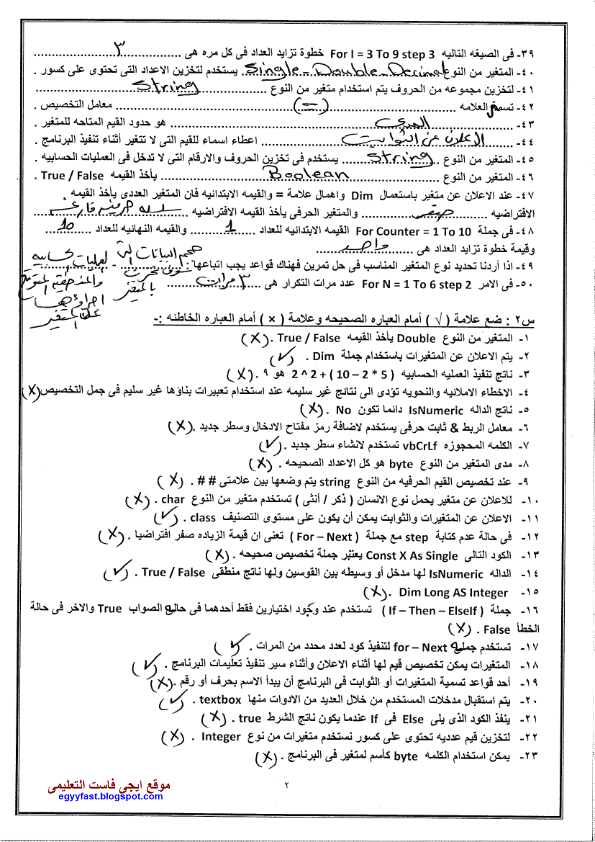 ٣٩- فى الصيغه التاليه For I = 3 To 9 step 3 خطوة تزايد العداد فى كل مره هى ٣
٤٠- المتغير من النوع Single - Double - Decimal يستخدم لتخزين الاعداد التى تحتوى على كسور .
٤١- لتخزين مجموعه من الحروف يتم استخدام متغير من النوع String .
٤٢- تسمى العلامه (=) معامل التخصيص .
٤٣- المدى هو حدود القيم المتاحه للمتغير .
٤٤- الاعلان عن الثوابت اعطاء اسماء للقيم التى لا تتغير أثناء تنفيذ البرنامج .
٤٥- المتغير من النوع String يستخدم فى تخزين الحروف والارقام التى لا تدخل فى العمليات الحسابيه .
٤٦- المتغير من النوع Boolean يأخذ القيمه True / False .
٤٧- عند الاعلان عن متغير باستعمال Dim واهمال علامة = والقيمه الابتدائيه فان المتغير العددى يأخذ القيمه
الافتراضيه صفر والمتغير الحرفى يأخذ القيمه الافتراضيه سلسلة حرفية فارغة
٤٨- فى جملة For Counter = 1 To 10 القيمه الابتدائيه للعداد 1 والقيمه النهائيه للعداد 10
وقيمة خطوة تزايد العداد هى واحد
٤٩- اذا أردنا تحديد نوع المتغير المناسب فى حل تمرين فهناك قواعد يجب اتباعها : حجم البيانات التى بالمتغير والعمليات الحسابيه اجراؤها على المتغير
٥٠- فى الامر For N = 1 To 6 step 2 عدد مرات التكرار هى ٣ مرات
س٢ : ضع علامة ( √ ) أمام العباره الصحيحه وعلامة ( × ) أمام العباره الخاطئه :-
١- المتغير من النوع Double يأخذ القيمه True / False . (X)
٢- يتم الاعلان عن المتغيرات باستخدام جملة Dim . (√)
٣- ناتج تنفيذ العمليه الحسابيه ( 5 * 2 – 10 ) + 2 ^ 2 هو ٩ . (X)
٤- الاخطاء الاملائيه والنحويه تؤدى الى نتائج غير سليمه عند استخدام تعبيرات بناؤها غير سليم فى جمل التخصيص (X)
٥- ناتج الداله IsNumeric دائما تكون No . (X)
٦- معامل الربط & ثابت حرفى يستخدم لاضافة رمز مفتاح الادخال وسطر جديد . (X)
٧- الكلمه المحجوزه vbCrLf تستخدم لانشاء سطر جديد . (√)
٨- مدى المتغير من النوع byte هو كل الاعداد الصحيحه . (X)
٩- عند تخصيص القيم الحرفيه من النوع string يتم وضعها بين علامتى # # . (X)
١٠- للاعلان عن متغير يحمل نوع الانسان ( ذكر / أنثى ) تستخدم متغير من النوع char . (X)
١١- الاعلان عن المتغيرات والثوابت يمكن أن يكون على مستوى التصنيف class . (√)
١٢- فى حالة عدم كتابة step مع جملة ( For – Next ) تعنى ان قيمة الزياده صفر افتراضيا . (X)
١٣- الكود التالى Const X As Single يعتبر جملة تخصيص صحيحه . (X)
١٤- الداله IsNumeric لها مدخل أو وسيطه بين القوسين ولها ناتج منطقى True / False . (√)
١٥- Dim Long AS Integer . (X)
١٦- جملة ( If – Then – ElseIf ) تستخدم عند وجود اختيارين فقط أحدهما فى حالة الصواب True والاخر فى حالة
الخطأ False . (X)
١٧- تستخدم جملة for – Next لتنفيذ كود لعدد محدد من المرات . (√)
١٨- المتغيرات يمكن تخصيص قيم لها أثناء الاعلان وأثناء سير تنفيذ تعليمات البرنامج . (√)
١٩- أحد قواعد تسمية المتغيرات أو الثوابت فى البرنامج أن يبدأ الاسم بحرف أو رقم . (X)
٢٠- يتم استقبال مدخلات المستخدم من خلال العديد من الادوات منها textbox . (√)
٢١- ينفذ الكود الذى يلى Else فى If عندما يكون ناتج الشرط true . (X)
٢٢- لتخزين قيم عدديه تحتوى على كسور نستخدم متغيرات من نوع Integer . (X)
٢٣- يمكن استخدام الكلمه byte كأسم لمتغير فى البرنامج . (X)
٢
موقع ايجى فاست التعليمى
egyyfast.blogspot.com